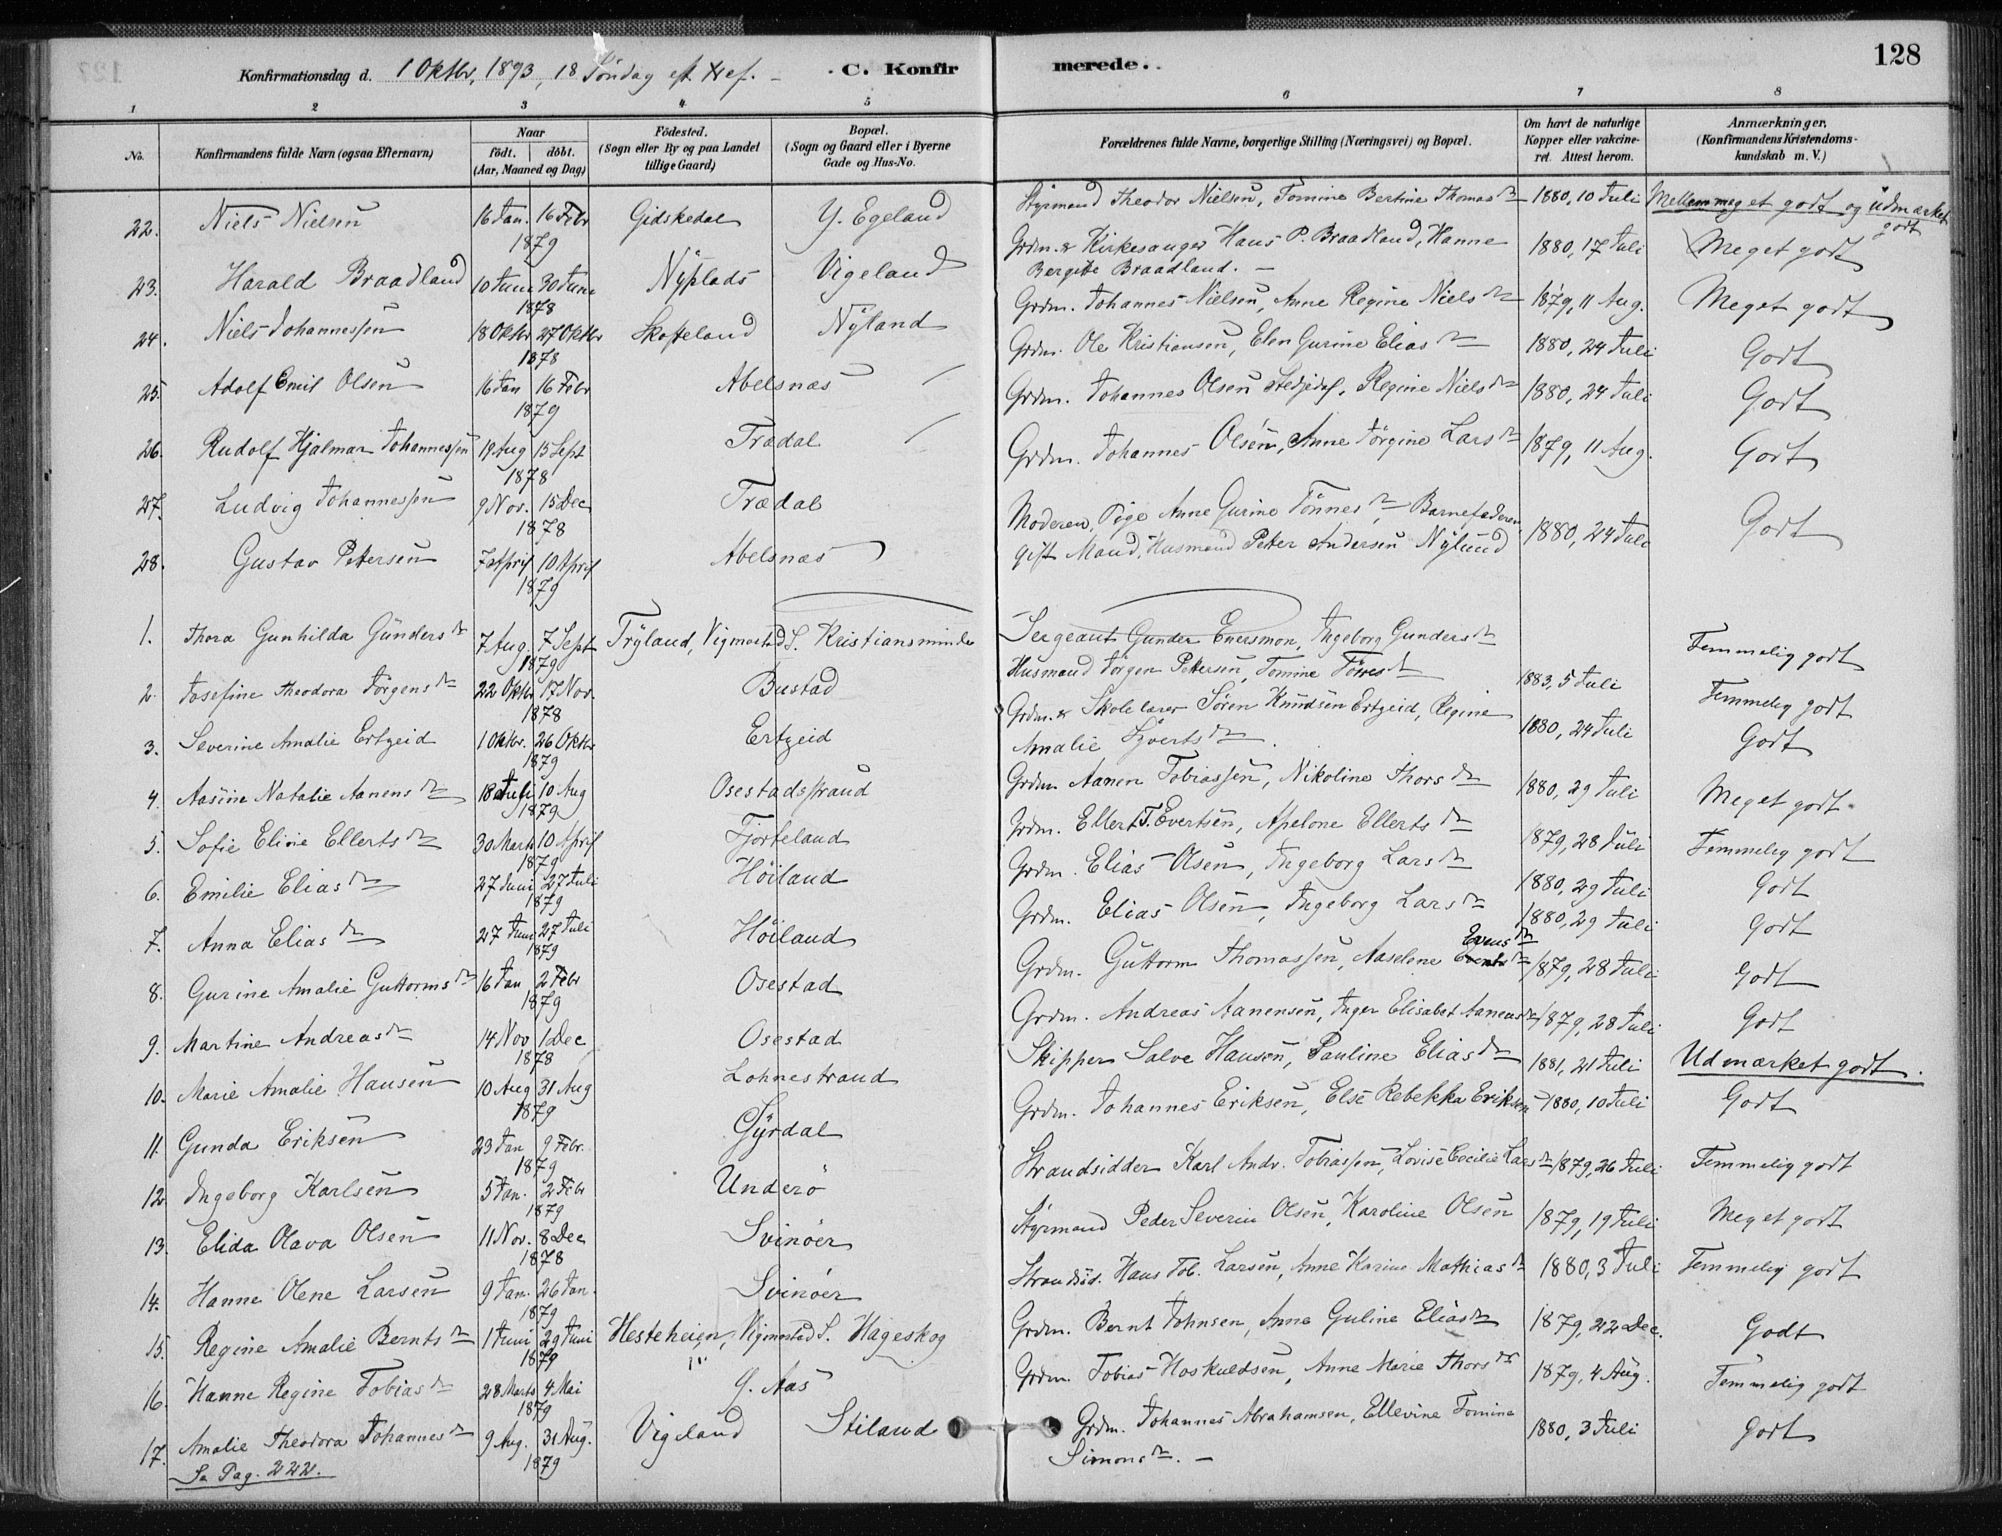 128
Konfirmationsdag d. 1 Oktbr, 1893, 18 Söndag eft Tref. - C. Konfirmerede.
1 2 3 4 5 6 7 8
No. Konfirmandens fulde Navn (ogsaa Efternavn) Naar födt. döbt. (Aar, Maaned og Dag) Födested. (Sogn eller By og paa Landet tillige Gaard) Bopæl. (Sogn og Gaard eller i Byerne Gade og Hus-No. Forældrenes fulde Navne, borgerlige Stilling (Næringsvei) og Bopæl. Om havt de naturlige Kopper eller vakcineret. Attest herom. Anmærkninger. (Konfirmandens Kristendomskundskab m. V.)
22. Niels Nielsen 16 Jan. 16 Febr 1879 Gidskedal Y. Egeland Styrmand Theodor Nielsen, Tomine Bertine Thomasdr 1880, 10 Juli Mellem meget godt og udmærket godt
23. Harald Braadland 10 Juni 30 Juni 1878 Nyplads Vigeland Grdm. & Kirkesanger Hans P. Braadland, Hanne Bergitte Braadland. - 1880, 17 Juli Meget godt
24. Niels Johannessen 18 Oktbr 27 Oktbr 1878 Skofteland Nyland Grdm. Johannes Nielsen, Anne Regine Nielsdr 1879, 11 Aug. Meget godt
25. Adolf Emil Olsen 16 Jan 16 Febr 1879 Abelsnæs Grdm. Ole Kristiansen, Elen Gurine Eliasdr 1880, 24 Juli Godt
26. Rudolf Hjalmar Johannessen 19 Aug 15 Sept 1878 Trædal Grdm. Johannes Olsen Stedjedal, Regine Nielsdr 1880, 24 Juli Godt
27. Ludvig Johannessen 9 Nov. 15 Dec 1878 Trædal Grdm. Johannes Olsen, Anne Jörgine Larsdr 1879, 11 Aug. Godt
28. Gustav Petersen 7 April 10 April 1879 Abelsnæs Moderen, Pige Anne Gurine Tönnesdr, Barnefaderen, gift Mand, Husmand Peter Andersen Nylund 1880, 24 Juli Godt
1. Thora Gunhilda Gundersdr 7 Aug. 7 Sept 1879 Tryland, Vigmostad S. Kristiansminde Sergeant Gunder Enersmon, Ingeborg Gundersdr Temmelig godt
2. Josefine Theodora Jörgensdr 22 Oktbr 17 Nov. 1878 Bustad Husmand Jörgen Petersen, Tomine Törresdr 1883, 5 Juli Temmelig godt
3. Severine Amalie Ertzeid 1 Oktbr. 26 Oktbr 1879 Ertzeid Grdm. & Skolelærer Sören Knudsen Ertzeid, Regine Amalie Syvertsdr. 1880, 24 Juli Godt
4. Aasine Natalie Aanensdr 18 Juli 10 Aug 1879 Osestadstrand Grdm. Aanen Tobiassen, Nikoline Thorsdr 1880, 29 Juli Meget godt
5. Sofie Eline Ellertsdr 30 Marts 10 April 1879 Fjorteland Grdm. Ellert T. Evertsen, Apelone Ellertsdr 1879, 28 Juli Temmelig godt
6. Emilie Eliasdr 27 Juni 27 Juli 1879 Höiland Grdm. Elias Olsen, Ingeborg Larsdr 1880, 29 Juli Godt
7. Anna Eliasdr 27 Juni 27 Juli 1879 Höiland Grdm. Elias Olsen, Ingeborg Larsdr 1880, 29 Juli Godt
8. Gurine Amalie Guttormsdr 16 Jan 2 Febr 1879 Osestad Grdm. Guttorm Thomassen, Aaselene Evensdr 1879, 28 Juli Godt
9. Martine Andreasdr 14 Nov 1 Dec 1878 Osestad Grdm. Andreas Aanensen, Inger Elisabet Aanensdr 1879, 28 Juli Godt
10. Marie Amalie Hansen 10 Aug 31 Aug 1879 Lohnestrand Skipper Salve Hansen, Pauline Eliasdr 1881, 21 Juli Udmærket godt.
11. Gunda Eriksen 23 Jan 9 Febr. 1879 Gyrdal Grdm. Johannes Eriksen, Else Rebekka Eriksen 1880, 10 Juli Godt
12. Ingeborg Karlsen 5 Jan. 2 Febr 1879 Underö Strandsidder Karl Andr. Tobiassen, Lovise Cecilie Larsdr 1879, 26 Juli Temmelig godt
13. Elida Olava Olsen 11 Nov. 8 Dec 1878 Svinöer Styrmand Peder Severin Olsen, Karoline Olsen 1879, 19 Juli Meget godt
14. Hanne Olene Larsen 9 Jan. 26 Jan. 1879 Svinöer Strandsid. Hans Tob. Larsen, Anne Karine Mathiasdr 1880, 3 Juli Temmelig godt
15. Regine Amalie Berntsdr 1 Juni 29 Juni 1879 Hesteheien, Vigmostad S. Hageskog Grdm. Bernt Johnsen, Anne Guline Eliasdr 1879, 22 Dec. Godt
16. Hanne Regine Tobiasdr 28 Marts 4 Mai 1879 G. Aas Grdm. Tobias Hoskuldsen, Anne Marie Thorsdr 1879, 4 Aug. Temmelig godt
17. Amalie Theodora Johannesdr 9 Aug. 31 Aug. 1879 Vigeland Stiland Grdm. Johannes Abrahamsen, Ellevine Tomine Simonsdr. - 1880, 3 Juli Godt
Se Pag. 222.